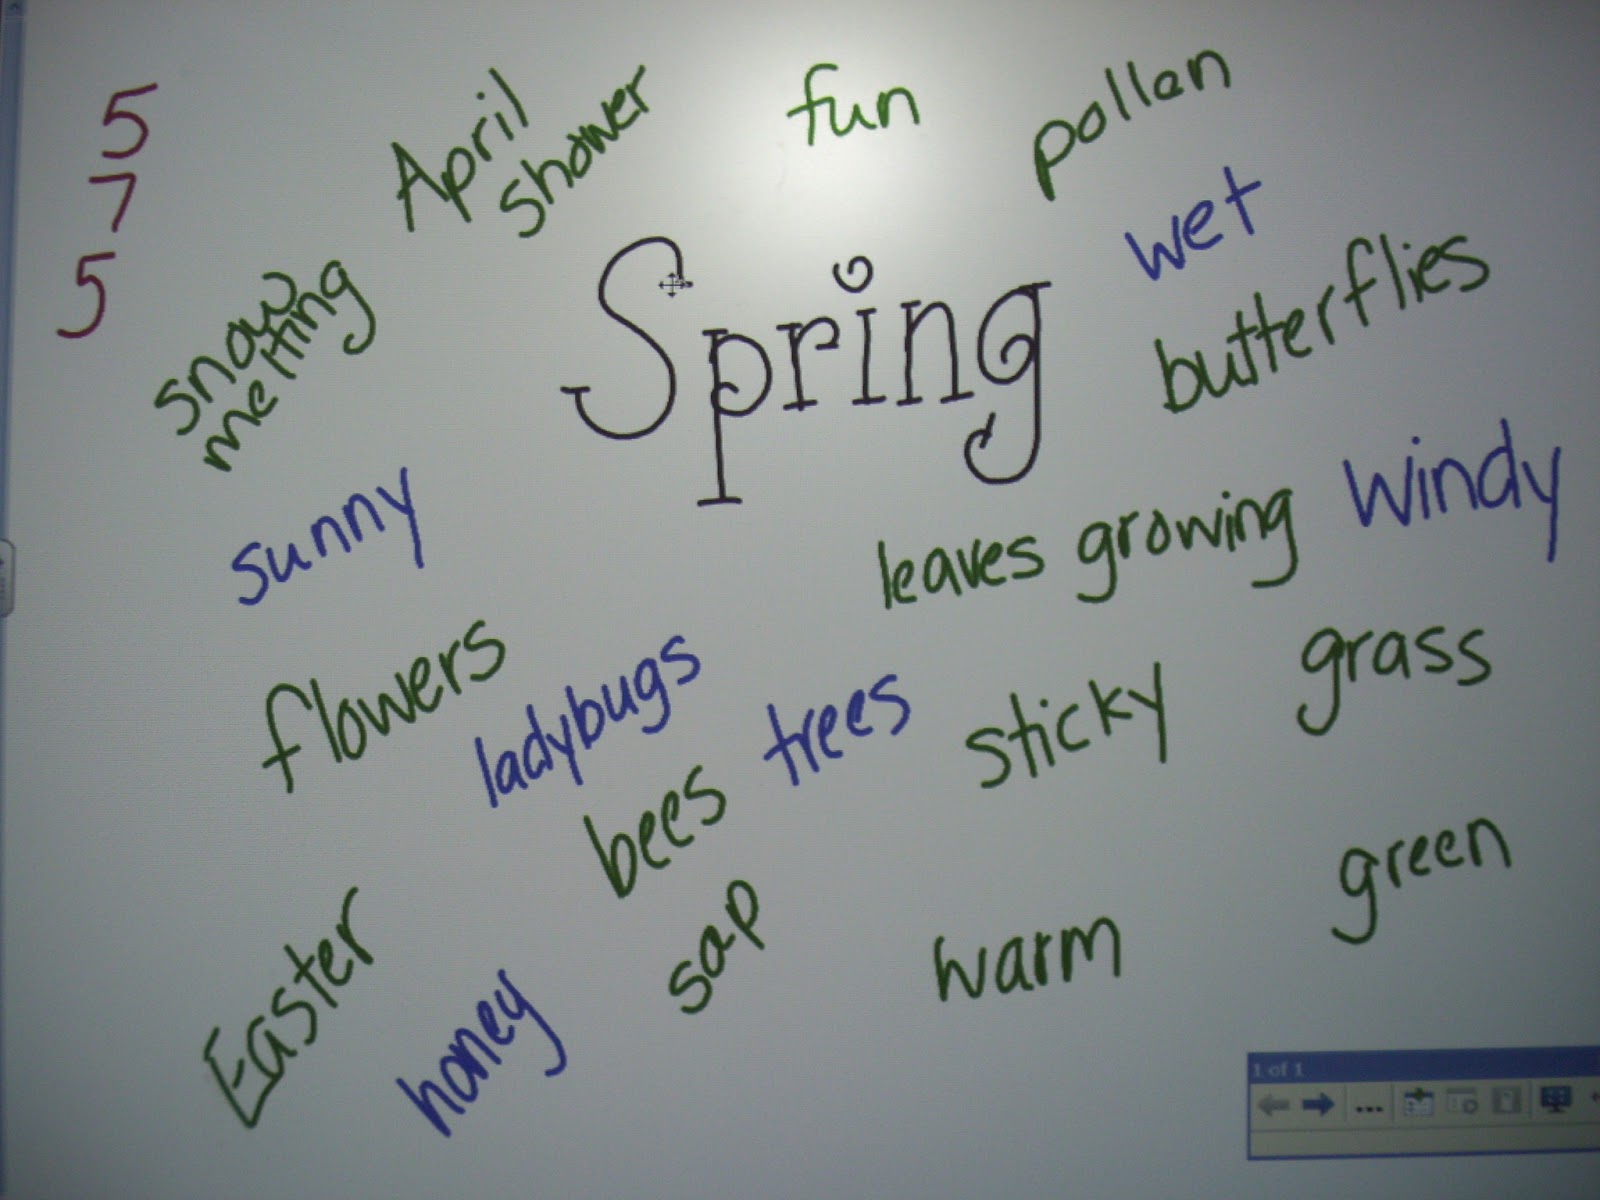 5
7
5
April
shower
fun
pollen
wet
snow
melting
Spring
butterflies
sunny
leaves growing
windy
flowers
ladybugs
trees
sticky
grass
bees
sap
warm
green
Easter
honey
1 of 1
...